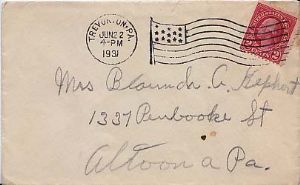 TREVORTON, PA.
JUN 22
4-PM
1931
Mrs Blannda A. Kephart
1337 Penbrooke St
Altoona Pa.